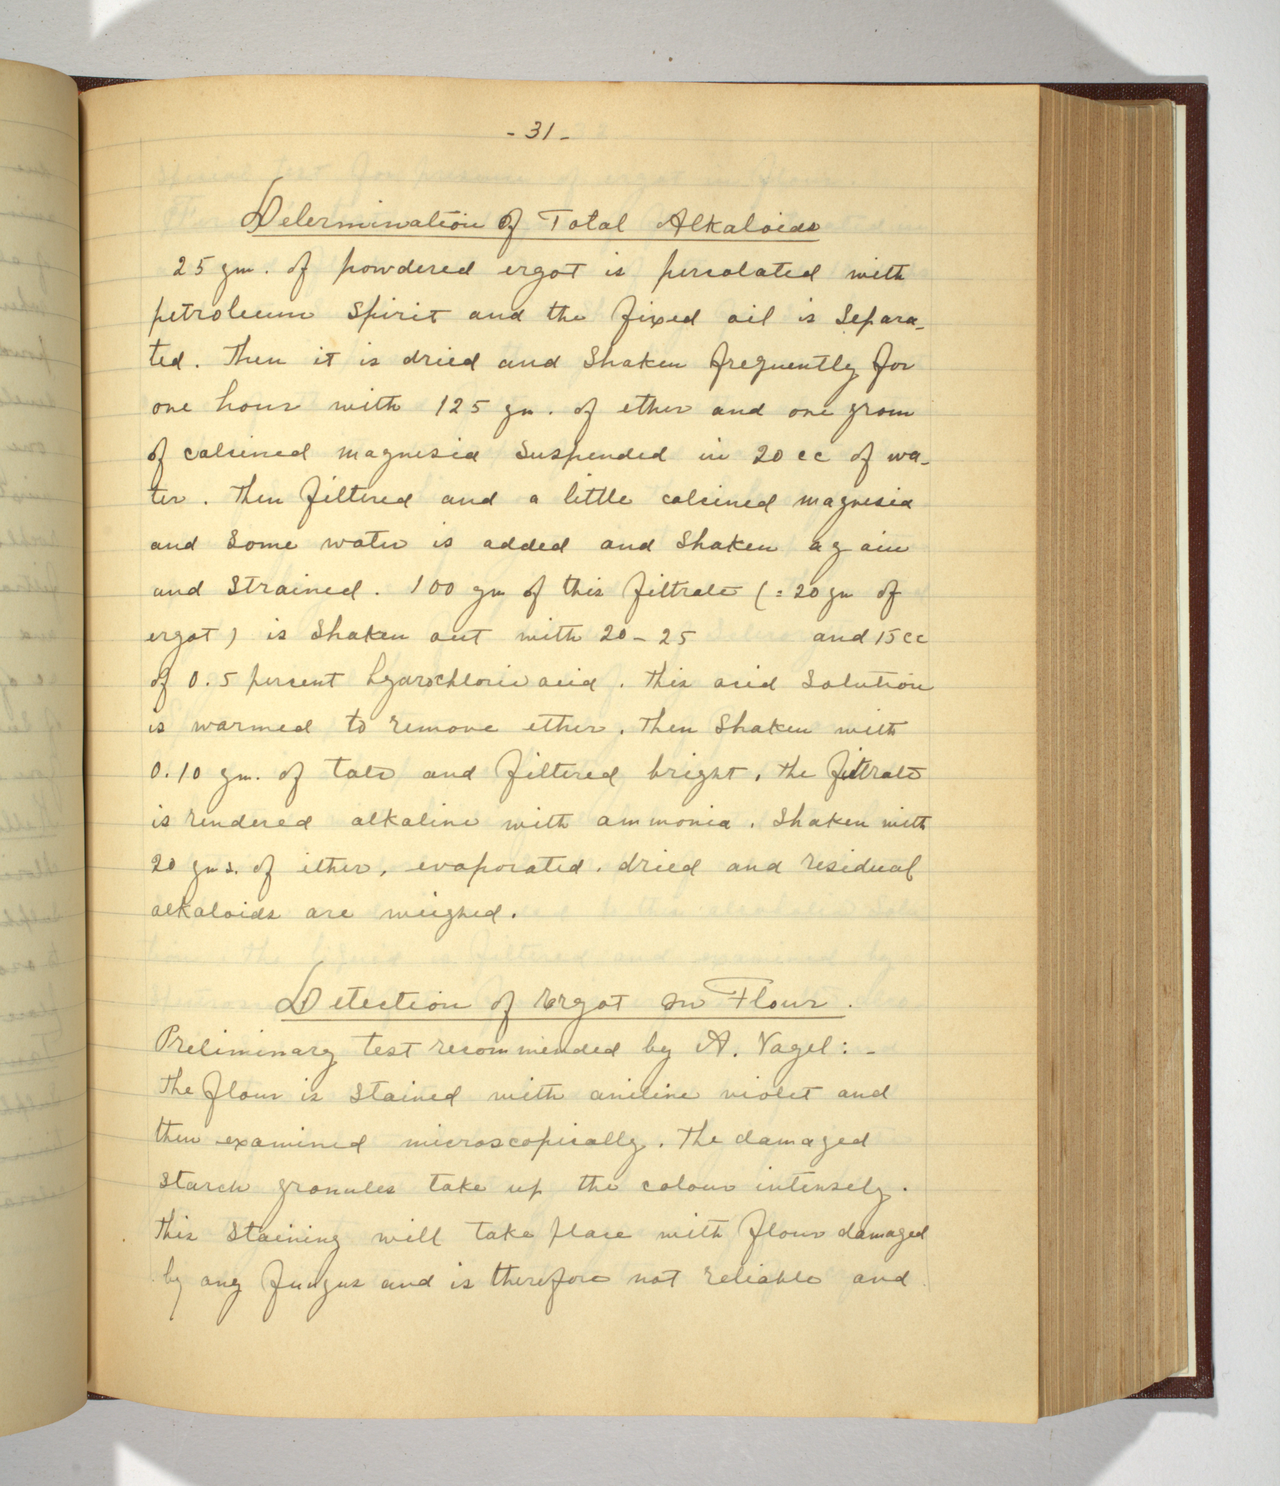 - 31 -
Determination of Total Alkaloids
25 gm. of powdered ergot is percolated with
petroleum spirit and the fixed oil is separa-
ted. Then it is dried and shaken frequently for
one hour with 125 gm. of ether and one gram
of calcined magnesia suspended in 20 cc of wa-
ter. Then filtered and a little calcined magnesia
and some water is added and shaken again
and strained. 100 gm of this filtrate (= 20 gm of
ergot) is shaken out with 20 - 25 and 15 cc
of 0.5 percent hydrochloric acid. This acid solution
is warmed to remove ether. Then shaken with
0.10 gm. of talc and filtered bright. The filtrate
is rendered alkaline with ammonia. Shaken with
20 gms. of ether, evaporated. dried and residual
alkaloids are weighed.
Detection of Ergot in Flour.
Preliminary test recommended by A. Vogel: -
The flour is stained with aniline violet and
then examined microscopically. The damaged
starch granules take up the colour intensely.
This staining will take place with flour damaged
by any fungus and is therefore not reliable and